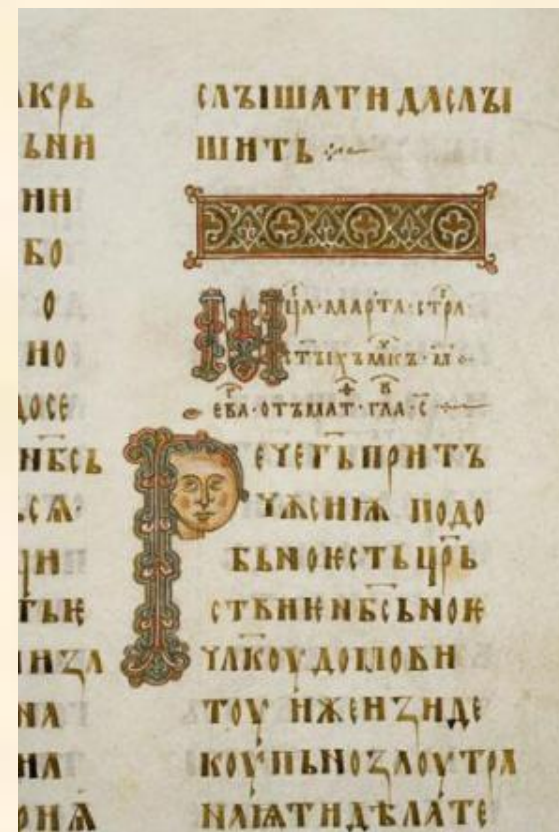 крь
ьни
ни
бо
о
но
досе
нб҃сь
ьсѧ·
ни
на
слꙑшати даслꙑ
шить
мц҃а·марта·стра
ст҃ꙑхъмк҃ъ·м҃·
ева·отъмат·гла·с҃
Рече г҃ь притъ
чѫ сиѭ подо
бьно ѥсть цр҃ь
ствиѥ нб҃сьноѥ
чл҃коу домови
тоу иже изиде
коупьно заоутра
наѩти дѣлате